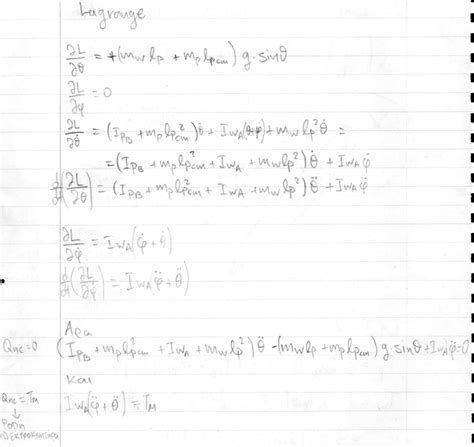 Lagrange
∂L/∂θ = +(m_w l_p + m_p l_pcm) g·sinθ
∂L/∂φ = 0
∂L/∂θ̇ = (I_PB + m_p l_pcm²)θ̇ + I_WA(θ̇+φ̇) + m_w l_p² θ̇ =
= (I_PB + m_p l_pcm² + I_WA + m_w l_p²) θ̇ + I_WA φ̇
d/dt(∂L/∂θ̇) = (I_PB + m_p l_pcm² + I_WA + m_w l_p²) θ̈ + I_WA φ̈
∂L/∂φ̇ = I_WA(φ̇ + θ̇)
d/dt(∂L/∂φ̇) = I_WA(φ̈ + θ̈)
Άρα
Qnc=0 (I_PB + m_p l_pcm² + I_WA + m_w l_p²) θ̈ - (m_w l_p + m_p l_pcm) g·sinθ + I_WA φ̈ = 0
και
Qnc = T_M I_WA(φ̈ + θ̈) = T_M
↓
Ροπή
ηλεκτροκινητήρα